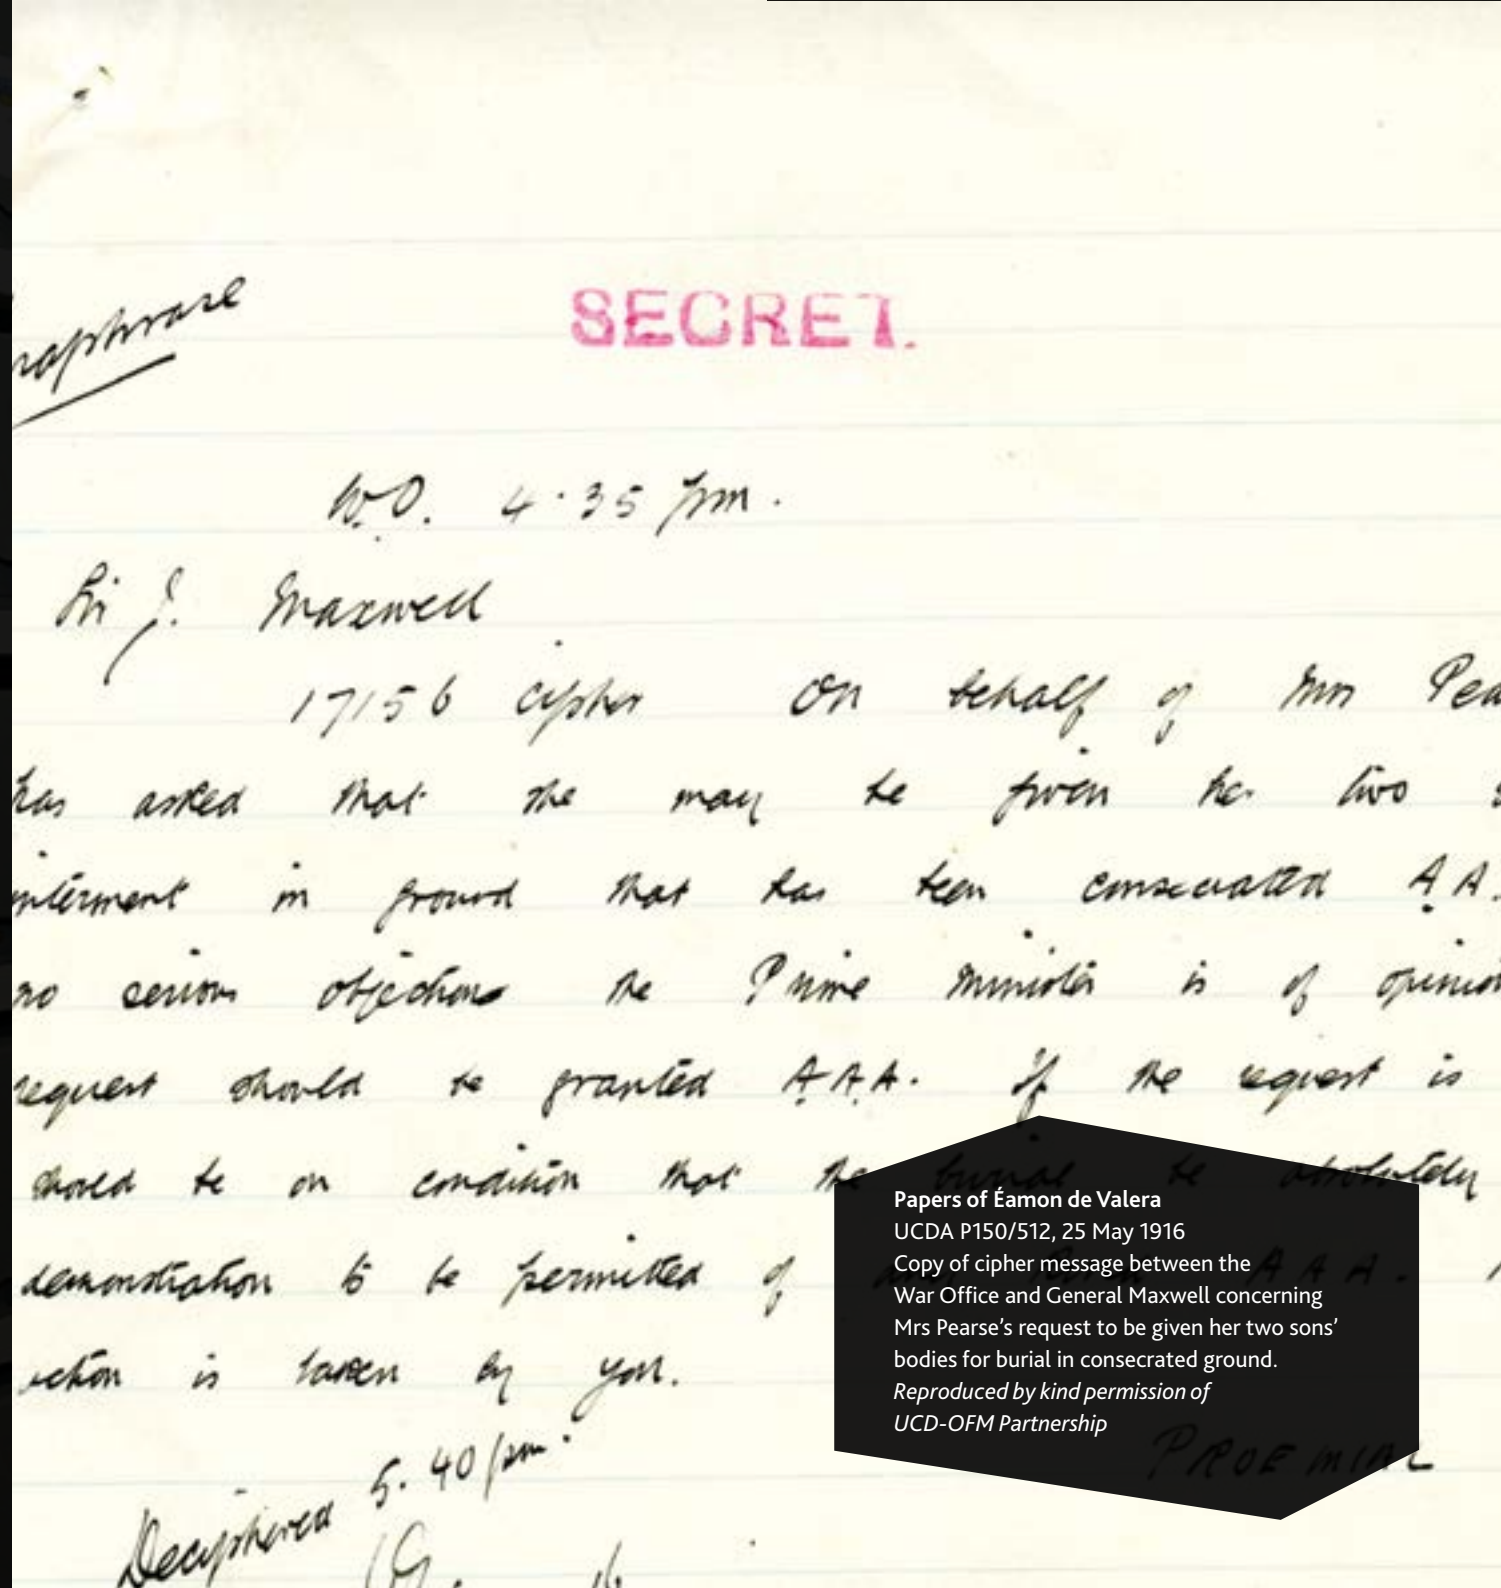 SECRET.
raphrase
W.O. 4.35 pm.
Sir J. Maxwell
17156 cipher On behalf of Mrs Pea
has asked that she may be given her two s
interment in ground that has been consecrated A A.
no serious objections the Prime Minister is of opinion
request should be granted A.A.A. If the request is
should be on condition that the burial be absolutely
demonstration to be permitted of any kind A A A.
action is taken by you.
PROEMIAL
Deciphered 5.40 pm.
Papers of Éamon de Valera
UCDA P150/512, 25 May 1916
Copy of cipher message between the
War Office and General Maxwell concerning
Mrs Pearse’s request to be given her two sons’
bodies for burial in consecrated ground.
Reproduced by kind permission of
UCD-OFM Partnership